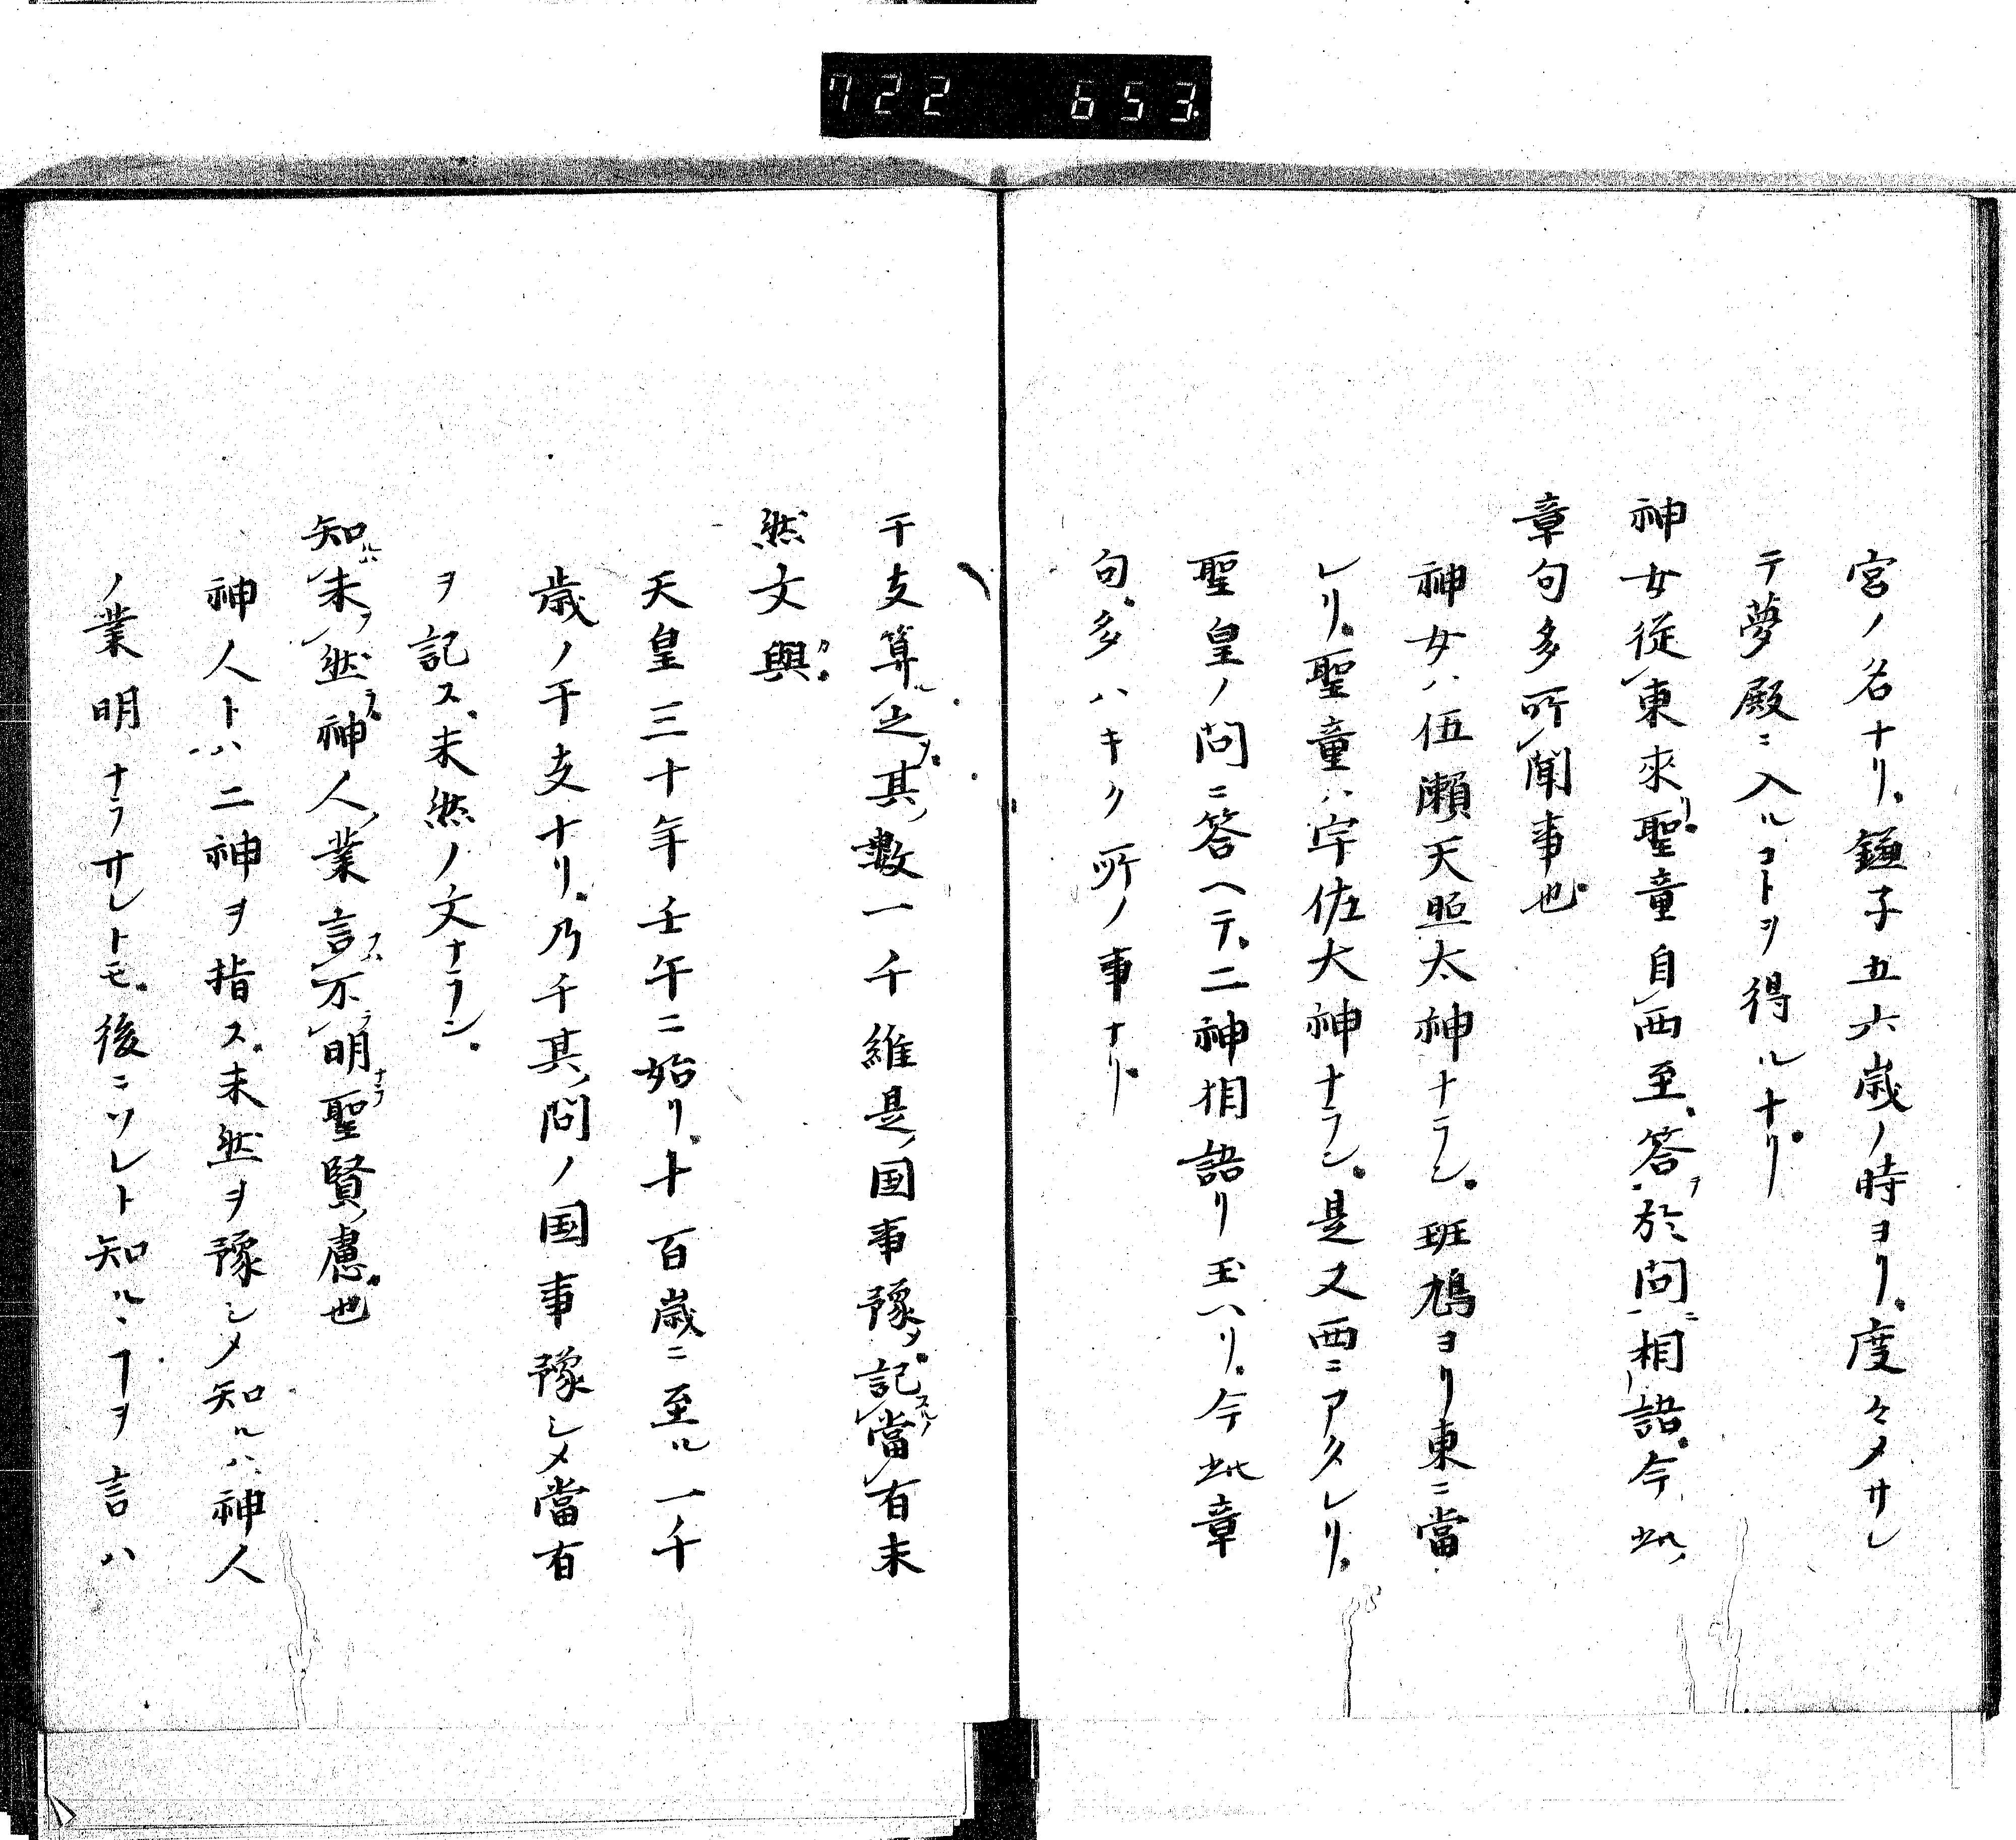 722 653
宮ノ名ナリ。鎌子五六歳ノ時ヨリ。度々メサレ
テ夢殿ニ入ルコトヲ得ルナリ。
神女従東來。聖童自西至。答於問相語。今此
章句多所聞事也
神女ハ伍瀬天照太神ナラン。斑鳩ヨリ東ニ當
レリ。聖童ハ宇佐大神ナラン。是又西ニアタレリ。
聖皇ノ問ニ答ヘテ。二神相語リ玉ヘリ。今此章
句。多ハキク所ノ事ナリ。
干支算之。其數一千維是国事豫。記當有未
然文與。
天皇三十年壬午ニ始リ。十百歳ニ至ル一千
歳ノ干支ナリ。乃千其問ノ国事豫シメ當有
ヲ記ス。未然ノ文ナラン。
知未然神人業言不明聖賢慮也
神人トハ二神ヲ指ス。未然ヲ豫シメ知ルハ神人
ノ業明ナラサレトモ。後ニソレト知ルヿヲ言ハ